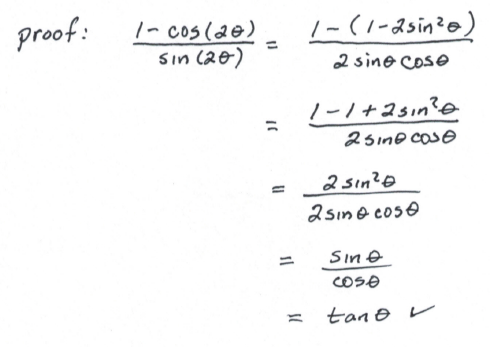 proof: (1 - cos(2θ)) / (sin(2θ)) = (1 - (1 - 2sin²θ)) / (2 sinθ cosθ)
= (1 - 1 + 2sin²θ) / (2 sinθ cosθ)
= (2 sin²θ) / (2 sinθ cosθ)
= sinθ / cosθ
= tanθ ✓